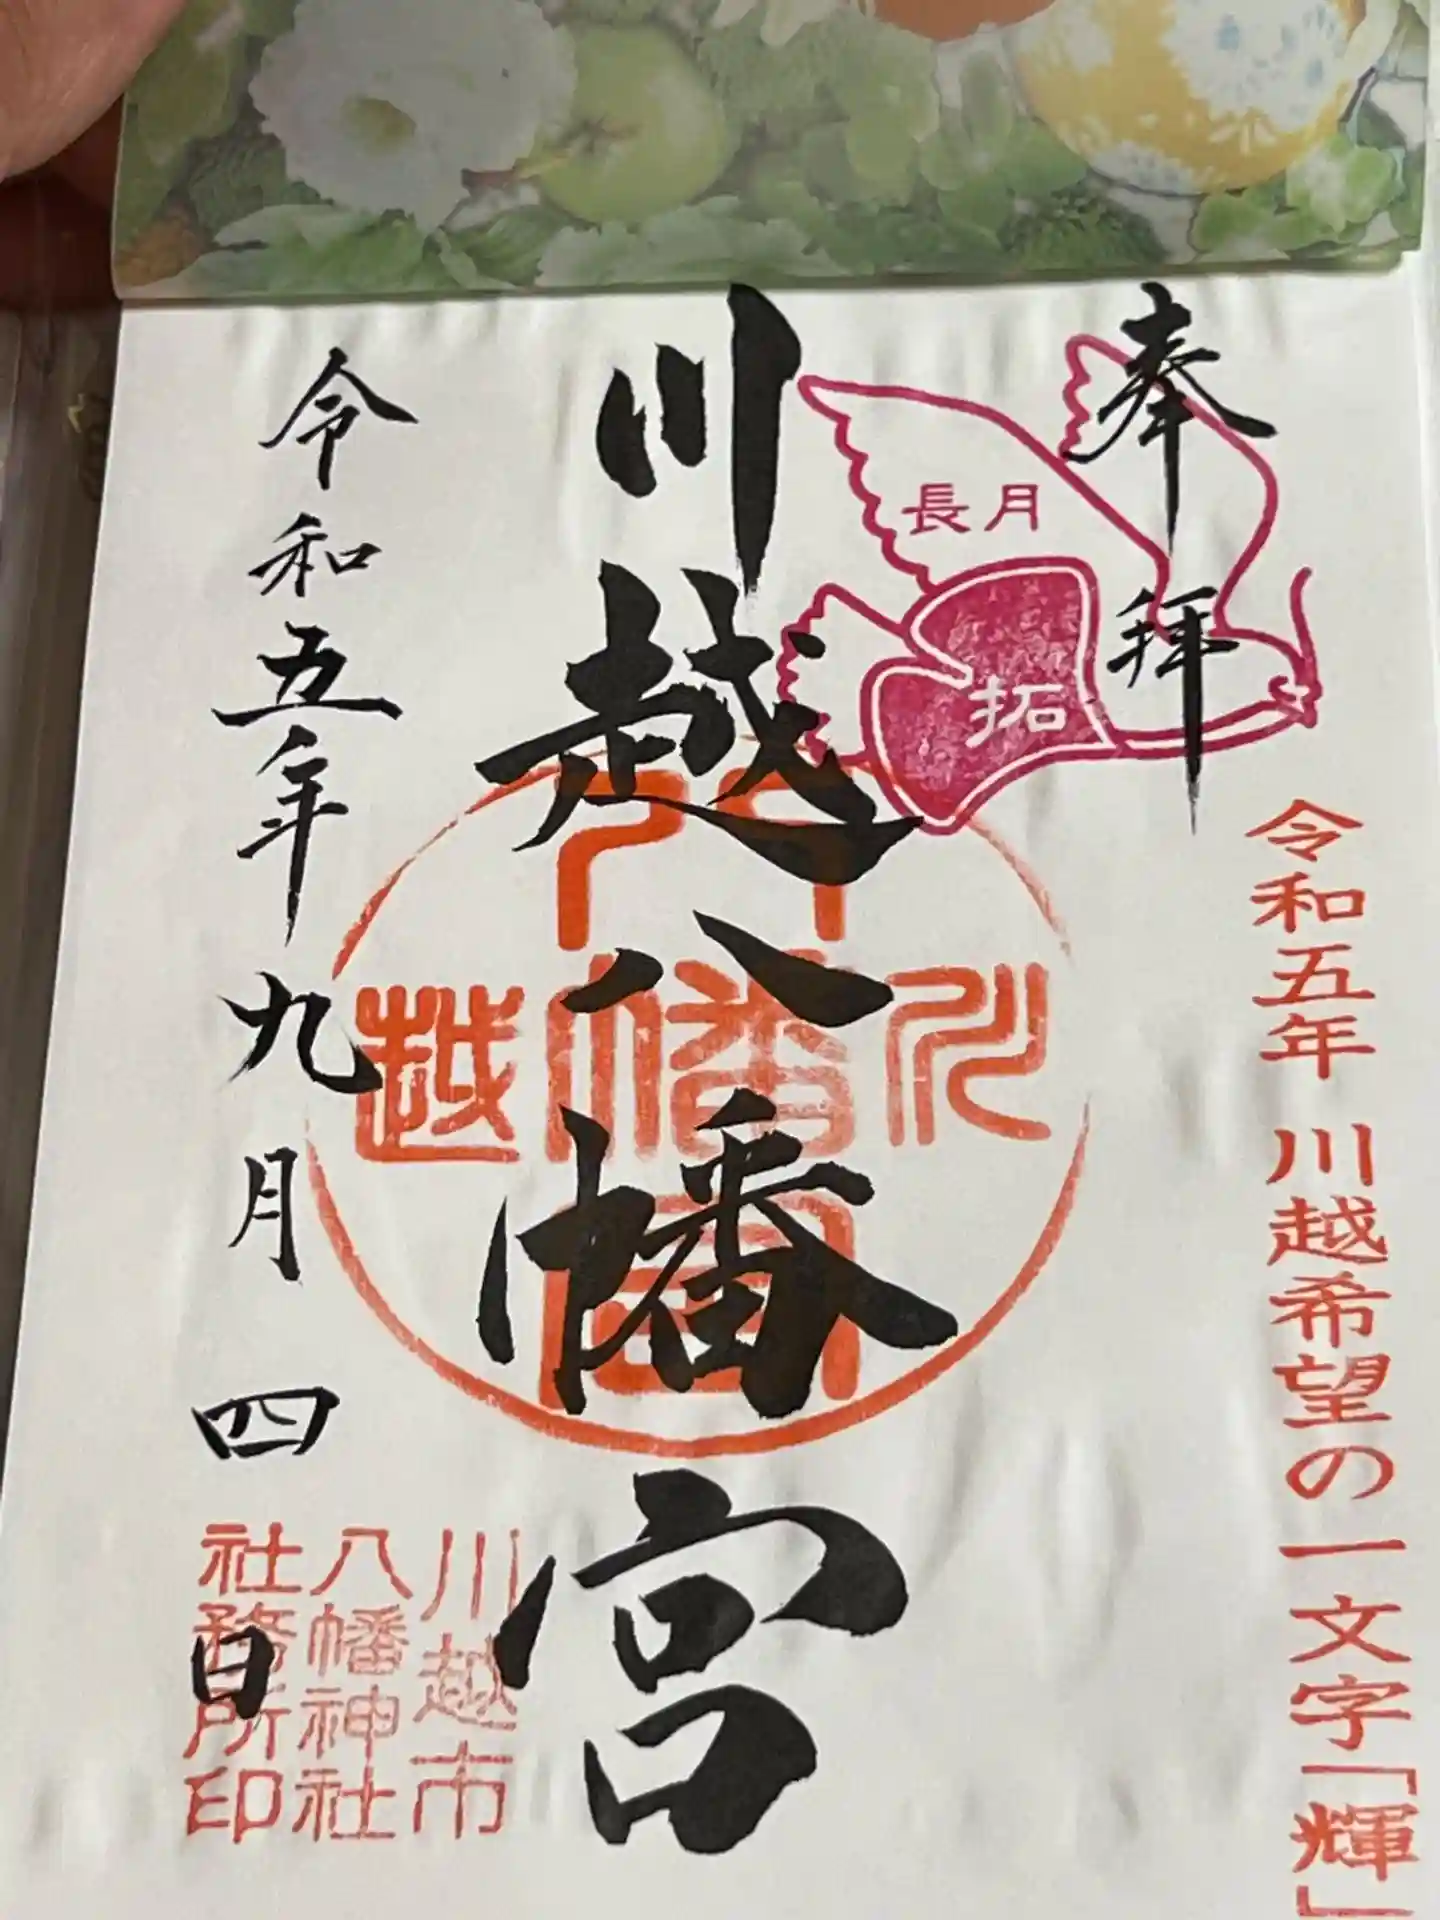 奉拝
長月
拓
令和五年 川越希望の一文字「輝」
川越八幡宮
川越八幡宮
令和五年九月四日
川越市
八幡神社
社務所印